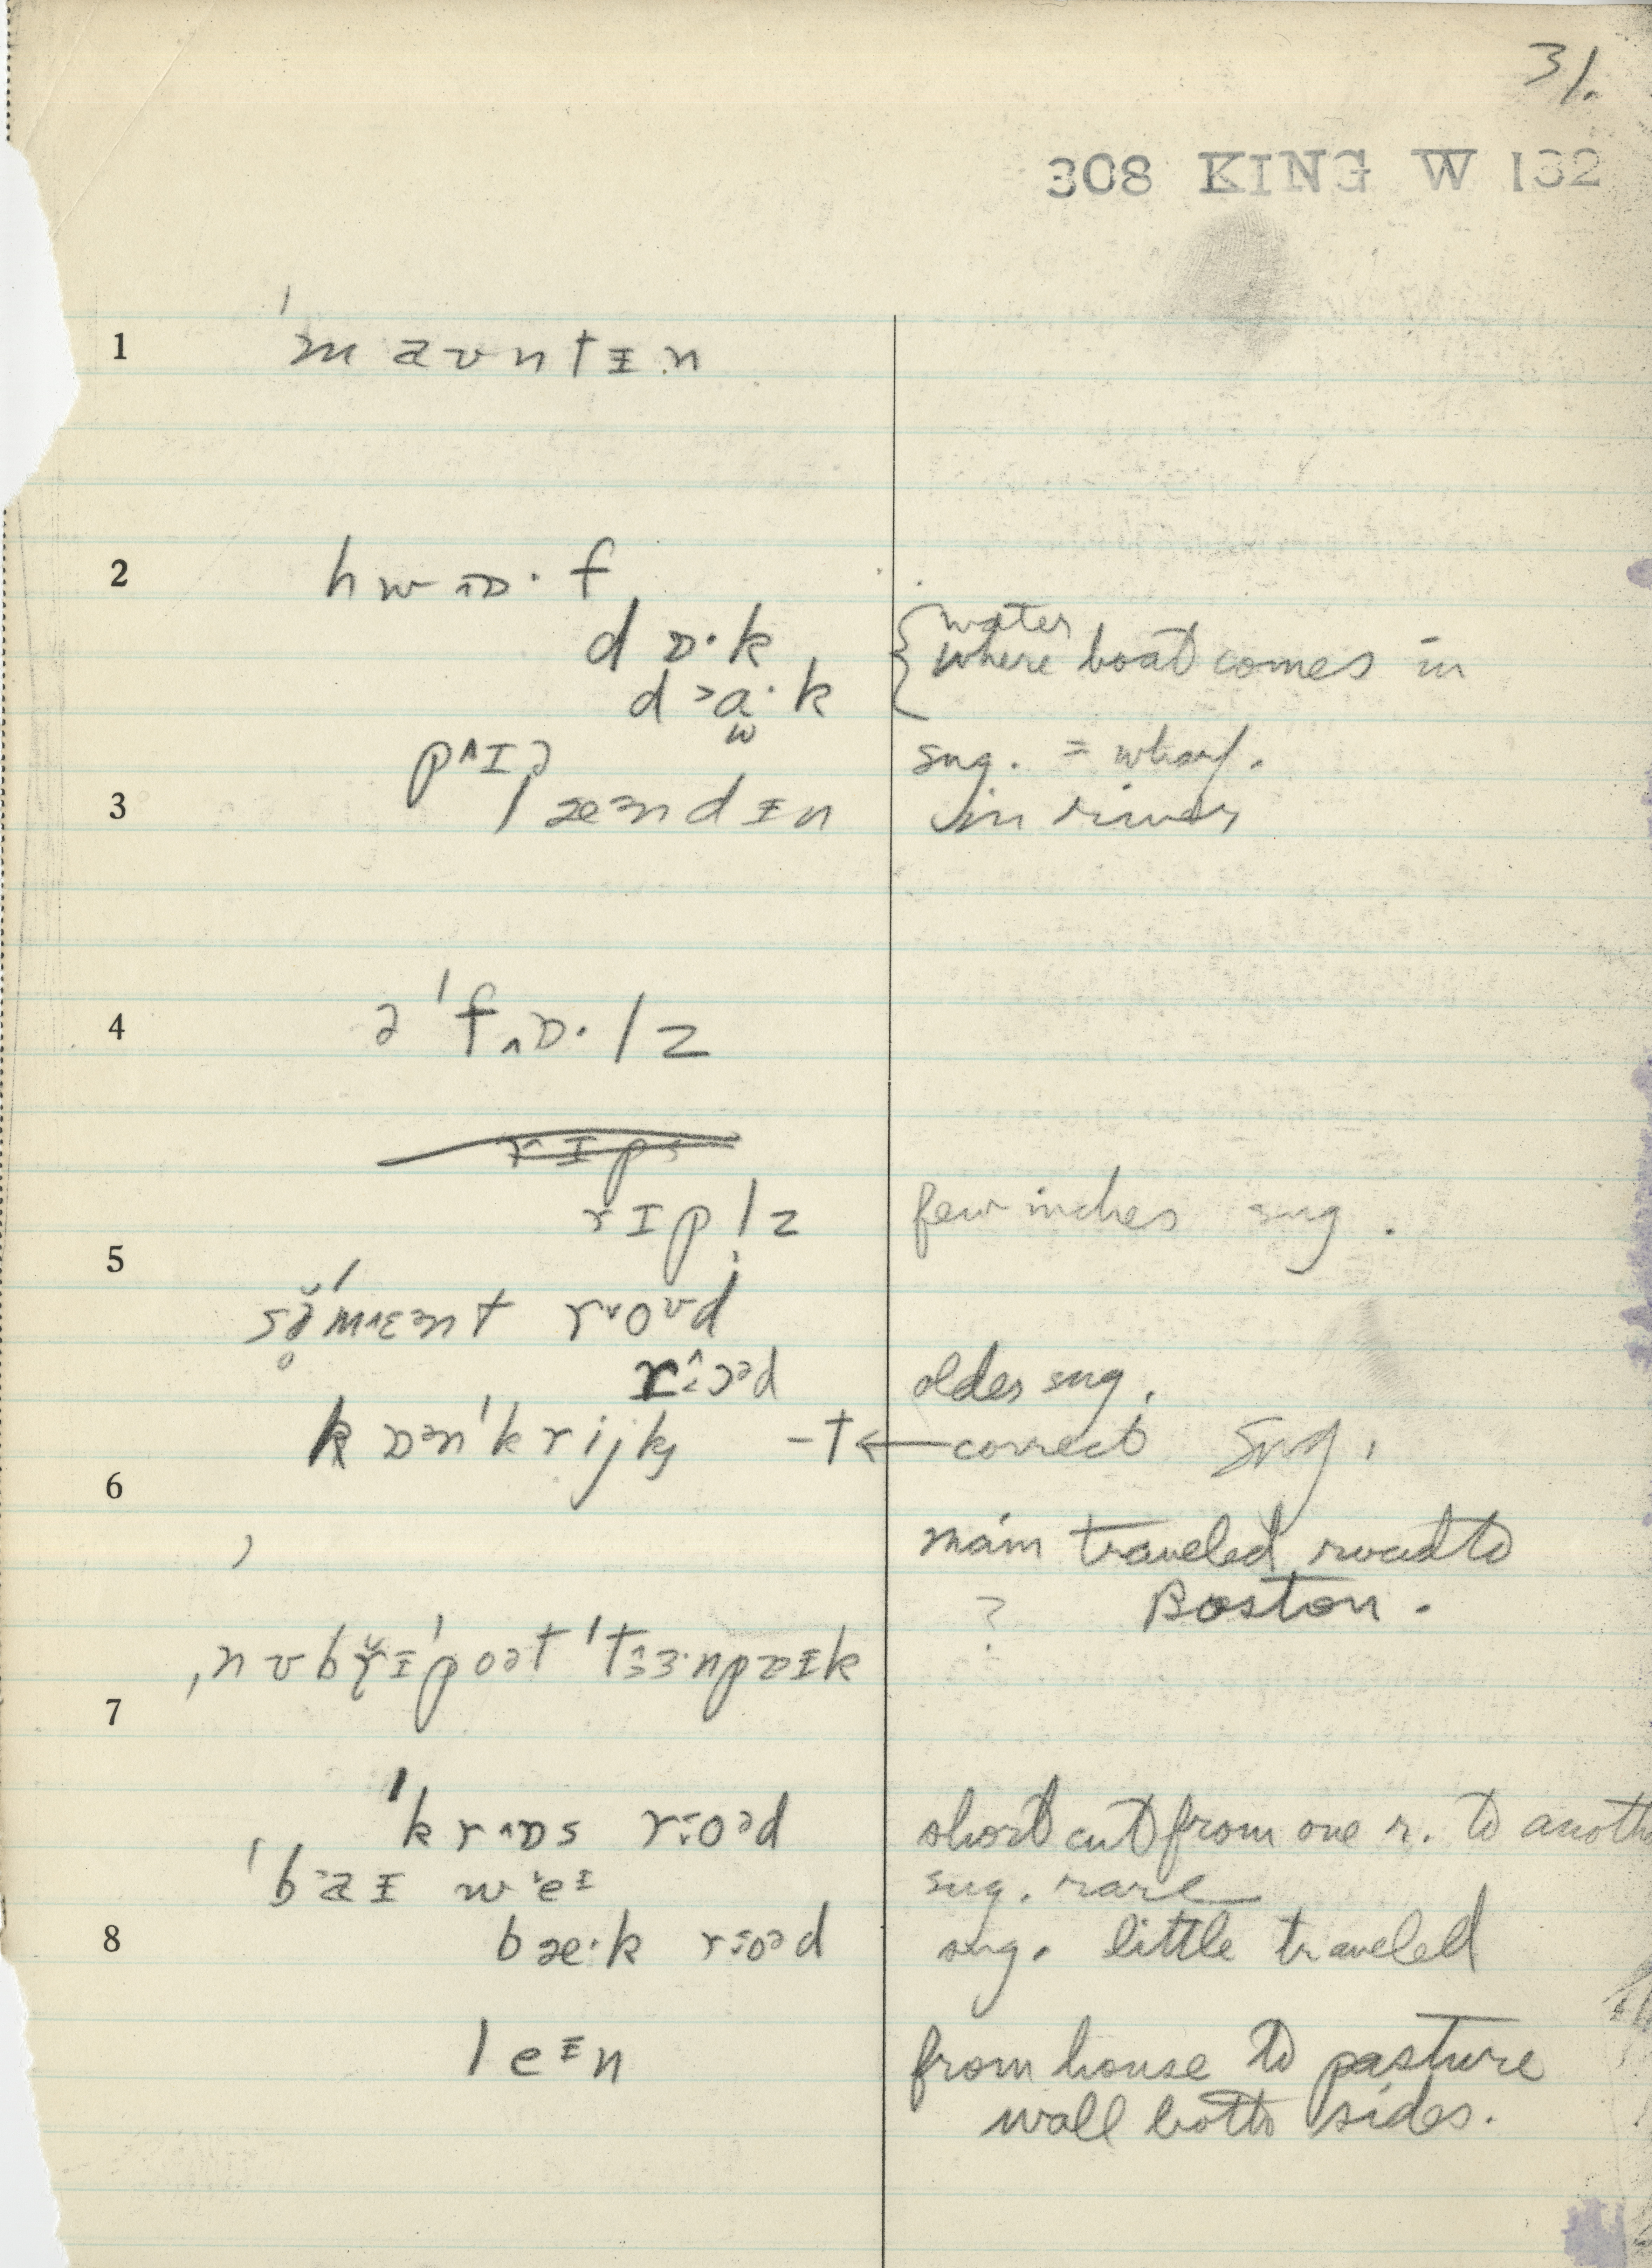 31.
308 KING W 132
1 ˈmaʊntɪn
2 hwɒ·f
dɒ·k
water
where boat comes in
d>a·k
pʌɪə sug. = wharf.
3 læəndɪn in river
4 əˈfʌɒ·lz
rɪps
rɪplz few inches sug.
5
səˈmɛənt roʊd
rɔəd older sug.
kɒənˈkrijk -t ← correct sug.
6
main traveled road to
? Boston.
ˌnʊbrɪˈpoət ˈtɜ·npɒɪk
7
ˈkrʌɒs roəd short cut from one r. to anoth
ˈbaɪ weɪ sug. rare
8 bæ·k roəd sug. little traveled
leɪn from house to pasture
wall both sides.